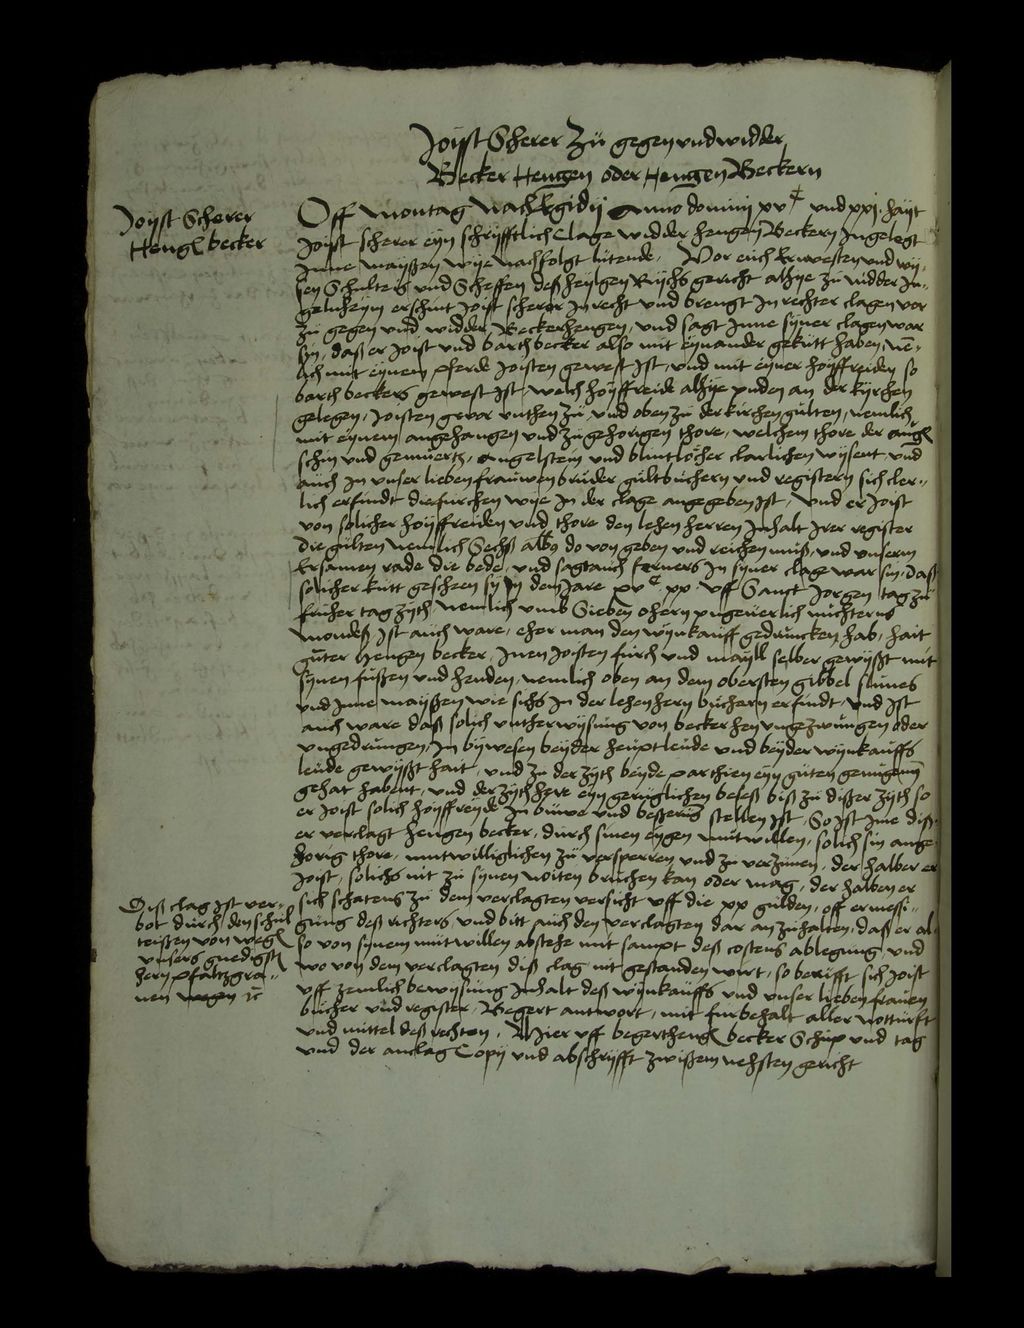 Joist Scherer zu gegen und widder
Becker Hengen oder Hengen Beckern
Joist Scherer
Heng becker
Off montag nach Egidij Anno domini xvc und xxj hayt
Joist scherer eyn schryfftlich clage widder hengen Beckern Ingelegt
Inne mayßen wye nachfolgt lutende, Vor euch Ernvesten und wy-
sen Schulteis und Scheffen deß heylgen Rychs gericht alhye zu nidder In-
gelnheym erschint Joist scherer In recht und brengt In rechter clagen vor
zu gegen und widder Beckerhengen, und sagt Inne syner clagen war
sin, daß er Joist und barch becker also mit eynander gekutt haben, nem-
lich mit eynem pferde Joisten gewest ist, und mit eyner hoyffreiden so
barch beckers gewest ist, welch hoyffreide alhye unden an der kyrchen
gelegen, Joisten gevor unthen zu und oben zu der kirchen gulten, nemlich
mit eynem angehangen und zugehorigen thore, welchem thore der aug
schin und gemuertz, angelstein und bluntlocher clarlichen wysent und
auch In unser lieben frauwen bruder gultbuchern und registern sich cler-
lich erfindt diefurchen wye In der clage angegeben ist, und er Joist
von solicher hoyffreiden und thore den lehen herren Inhalt Irer register
die gulten nemlich Sechß albus do von geben und reichen muß, und unserm
Ersamen rade die bede, und sagt auch ferners In syner clage war sin, daß
solicher kutt gescheen sy In dem Jare xvc xx uff Sanct Jorgen tag zu
fruher tag zyth nemlich umb Sieben ohern ungeverlich nuchterns
mondeß Ist auch ware, eher man den wynkauff gedruncken hab, hait
guter hengen becker, Inen Joisten furch und mayll selber gewyßt mit
synen fußen und henden, nemlich oben an dem obersten gibbel sinnes
und Inne mayßen wie sichs In der lehenhern buchern erfindt, und Ist
auch ware daß solich untherwysung von beckerhen ungezwungen oder
ungedrungen, In bywesen beyder heuptleude und beyder wynkauffs
leude gewyßt hait, und zu der zyth beyde parthien eyn guten genugen
gehat habent, und der zyth here eyn geruglichen beseß biß zu dißer zyth so
er Joist solich hoyffreyde In buwe und besserung stellen ist, So ist Ime diß
er verclagt hengen becker, durch sinen eygen mutwillen, solich sin ange
horig thore, mutwilliglichen zu versperren und zu verzunen, der halber er
Joist, solichs nit zu synen noiten bruchen kan oder mag, der halben er
sich schatens zu dem verclagten versicht uff die xx gulden, off ermessi-
gung deß richters, und bitt auch den verclagten dar an zuhalten, daß er al-
so von synem mutwillen abstehe mit sampt deß costens ablegung, und
wo von dem verclagten diß clag nit gestanden wirt, so berufft sich Joist
uff zemlich bewysung Inhalt deß wynkauffs und unser lieben frauen
bucher und register, Begert antwort, mit furbehalt aller notturfft
und mittel deß rechten, Hier uff begert heng becker Schup und tag
und der anclag Copy und abschryfft zwischen nehsten gericht
Diß clag ist ver-
bot durch den schul
teisten von weg
unsers gnedigst
hern pfaltzgra-
ven wegen rc